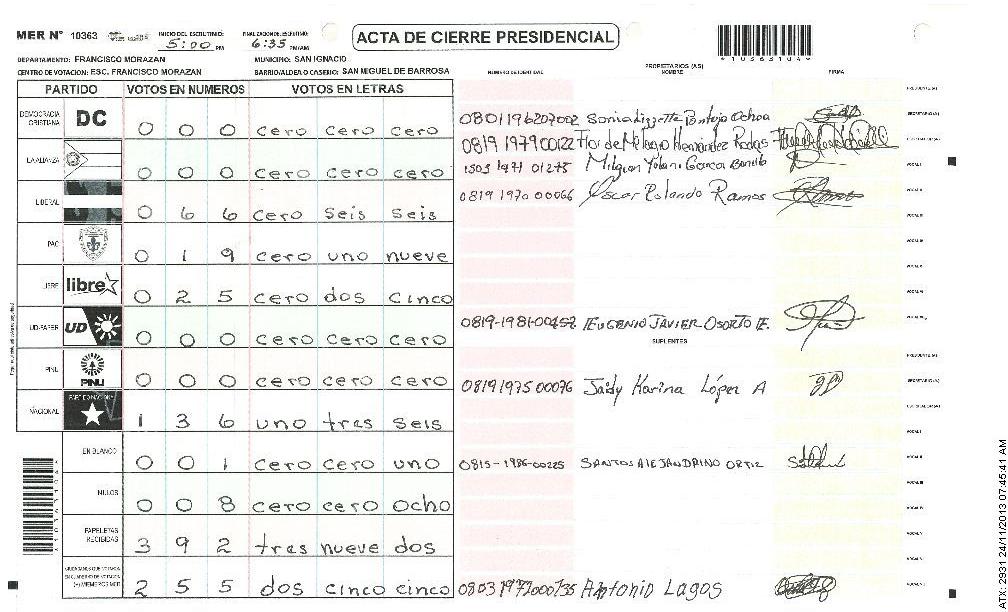 MER N° 10363 INICIO DEL ESCRUTINIO: 5:00 PM FINALIZACION DEL ESCRUTINIO: 6:35 PM/AM ACTA DE CIERRE PRESIDENCIAL *10363104*
DEPARTAMENTO: FRANCISCO MORAZAN MUNICIPIO: SAN IGNACIO
CENTRO DE VOTACION: ESC. FRANCISCO MORAZAN BARRIO/ALDEA O CASERIO: SAN MIGUEL DE BARROSA
NÚMERO DE IDENTIDAD PROPIETARIOS (AS) NOMBRE FIRMA
PARTIDO VOTOS EN NUMEROS VOTOS EN LETRAS
DEMOCRACIA CRISTIANA DC 0 0 0 cero cero cero
LA ALIANZA 0 0 0 cero cero cero
LIBERAL 0 6 6 cero seis seis
PAC 0 1 9 cero uno nueve
LIBRE libre 0 2 5 cero dos cinco
UD-FAPER UD 0 0 0 cero cero cero
PINU PINU 0 0 0 cero cero cero
NACIONAL 1 3 6 uno tres seis
EN BLANCO 0 0 1 cero cero uno
NULOS 0 0 8 cero cero ocho
PAPELETAS RECIBIDAS 3 9 2 tres nueve dos
CIUDADANOS QUE VOTARON EN CUADERNO DE VOTACION (+) MIEMBROS MER 2 5 5 dos cinco cinco
0801196207002 Sonia Lizzette Ochoa
0819 1979 00122 Flor de Hernández Rodas
1503 1971 01275
0819 1970 00066 Oscar Rolando Ramos
0819-1981-00252 EUGENIO JAVIER OSORTO E.
SUPLENTES
0819 1975 00076 Karina López A
0815-1986-00225 SANTOS ALEJANDRINO ORTIZ
0803 1972000735 Antonio Lagos
ATX: 2931 24/11/2013 07:45:41 AM